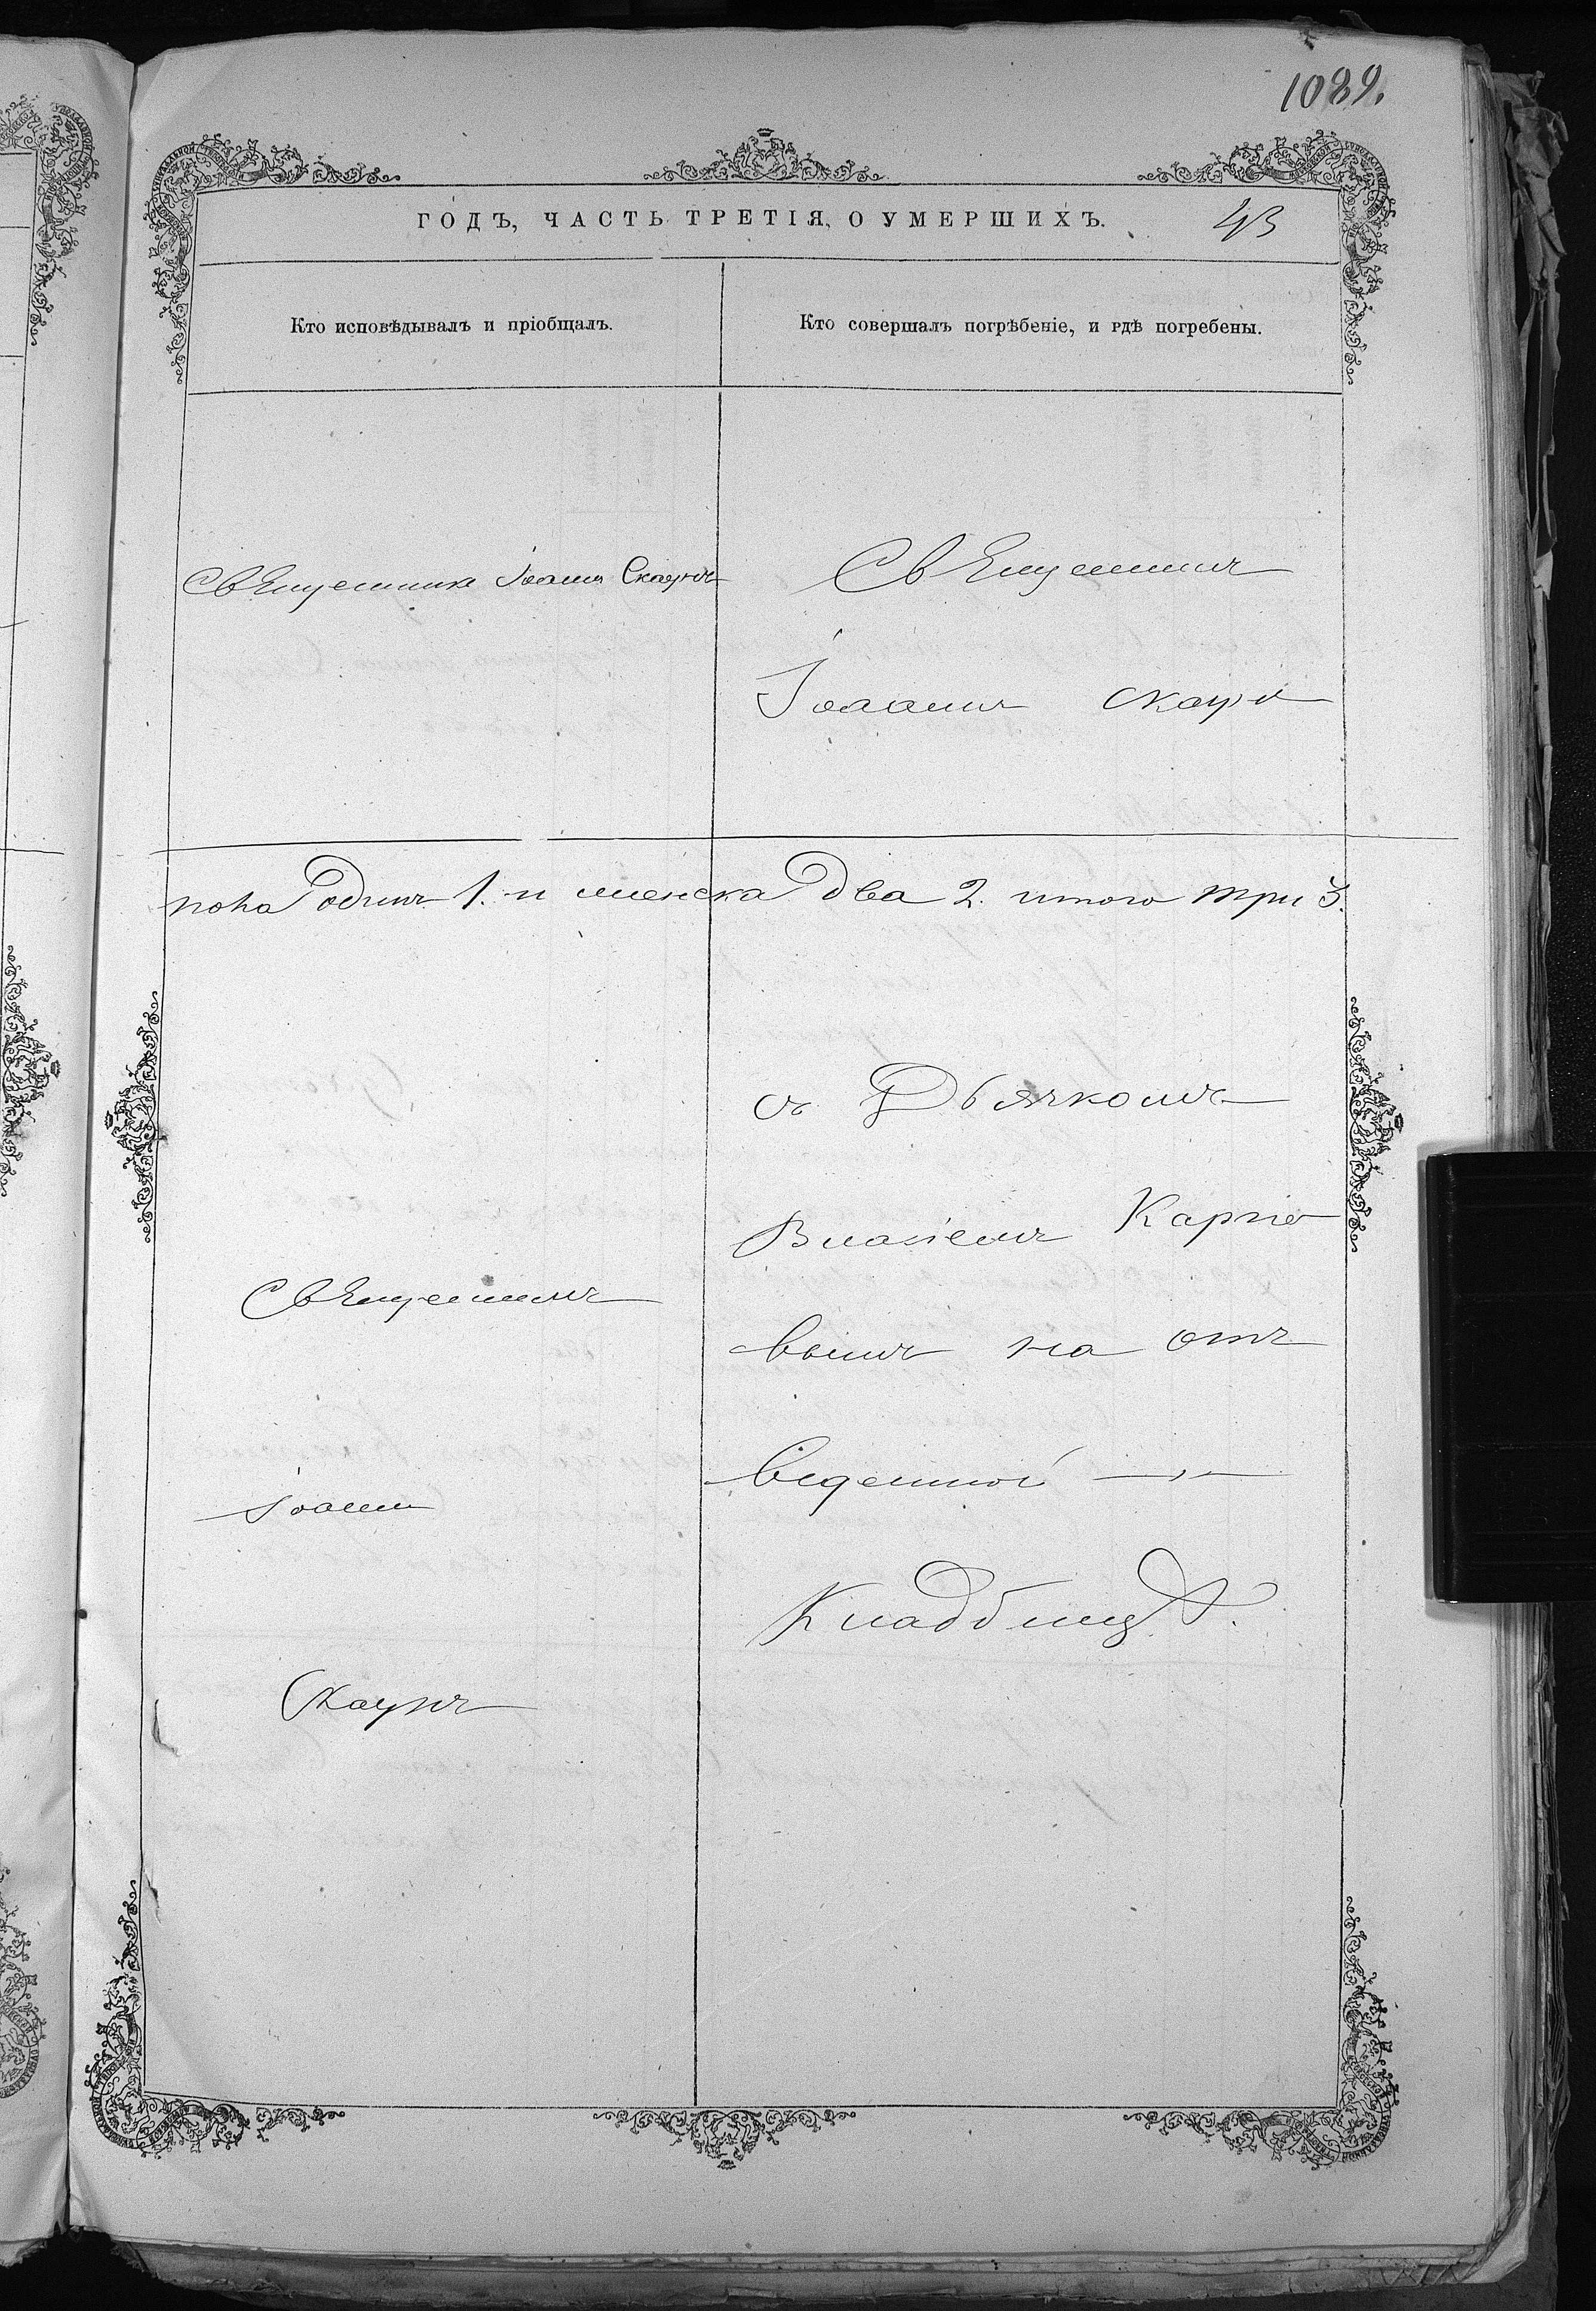 1089.
ГОДЪ, ЧАСТЬ ТРЕТІЯ, О УМЕРШИХЪ. 43
Кто исповѣдывалъ и пріобщалъ.
Кто совершалъ погрѣбеніе, и гдѣ погребены.
Священника Іоаннъ Скаунъ
Священникъ
Іоааннъ Скаун
пола одинъ 1. и женска два 2. итого три 3.
съ Дьячкомъ
Власіемъ Карпо
вымъ на отъ
веденной
Кладбищѣ.
Священникъ
Іоаннъ
Скаунъ